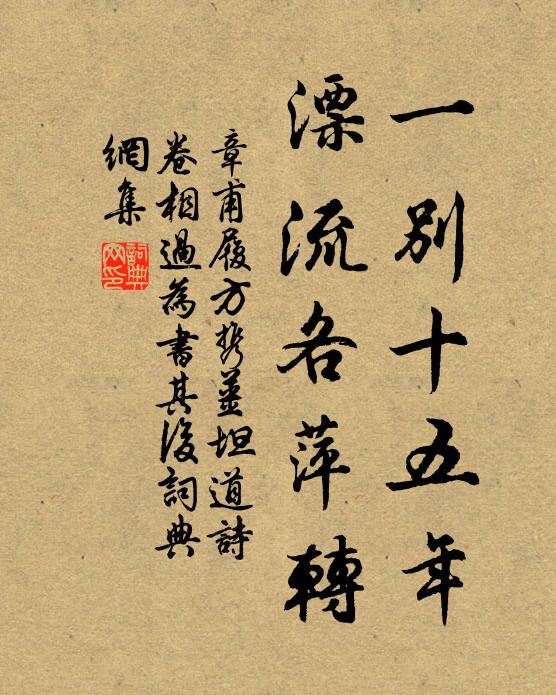 一别十五年
漂流各萍轉
章甫履方攜姜坦道詩
卷相過為書其後詞典
網集
詞典
网印